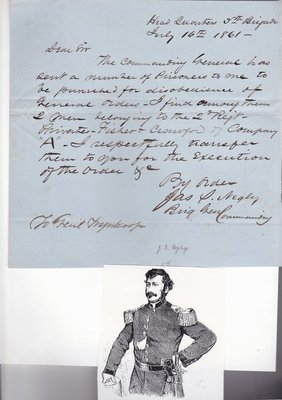 Head Quarters 5th Brigade
July 16th 1861-
Dear Sir
The Commanding General has
sent a number of Prisoners to me to
be punished for disobedience of
General Orders - I find among them
2 men belonging to the 2d Regt
Fisher & Crawford of Company
"A" - I respectfully transfer
them to you for the Execution
of the Order &c
By Order
Jas S. Negley
Brig Gen Commanding
To Genl Wynkoop
J. S. Negley